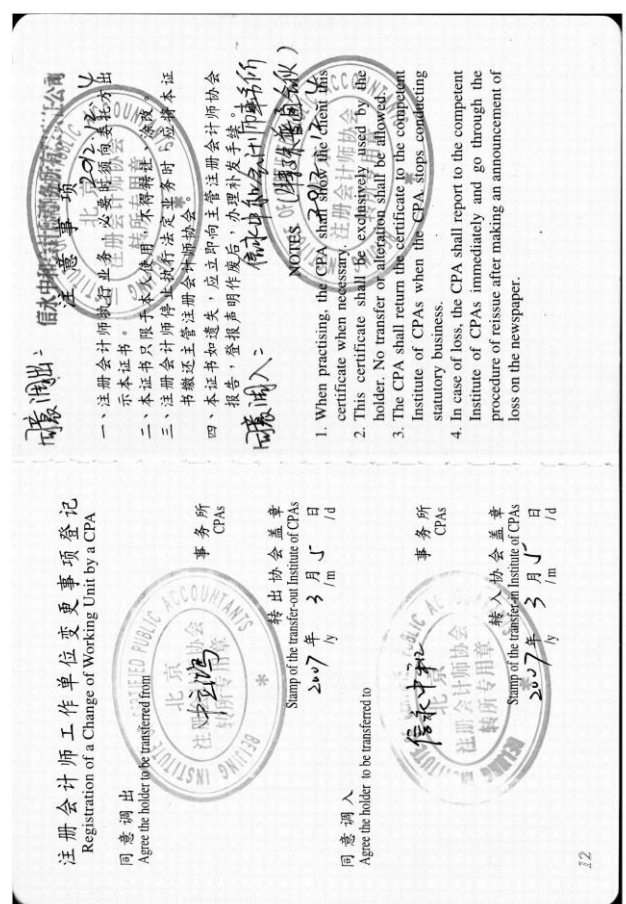 注册会计师工作单位变更事项登记
Registration of a Change of Working Unit by a CPA
同意调出
Agree the holder to be transferred from
中立鸿
事务所
CPAs
BEIJING INSTITUTE OF CERTIFIED PUBLIC ACCOUNTANTS
北京
注册会计师协会
转所专用章
转出协会盖章
Stamp of the transfer-out Institute of CPAs
2007年 3月 5日
/y /m /d
同意调入
Agree the holder to be transferred to
信永中和
事务所
CPAs
北京
注册会计师协会
转所专用章
转入协会盖章
Stamp of the transfer-in Institute of CPAs
2007年 3月 5日
/y /m /d
12
同意调出:
2012.12.4
注意事项
北京
注册会计师协会
转所专用章
一、注册会计师执行业务,必要时须向委托方出
示本证书。
二、本证书只限于本人使用,不得转让、涂改。
三、注册会计师停止执行法定业务时,应将本证
书缴还主管注册会计师协会。
四、本证书如遗失,应立即向主管注册会计师协会
报告,登报声明作废后,办理补发手续。
同意调入:
信永中和会计师事务所
(特殊普通合伙)
NOTES
注册会计师协会
转所专用章
1. When practising, the CPA shall show the client this
certificate when necessary.
2. This certificate shall be exclusively used by the
holder. No transfer or alteration shall be allowed.
3. The CPA shall return the certificate to the competent
Institute of CPAs when the CPA stops conducting
statutory business.
4. In case of loss, the CPA shall report to the competent
Institute of CPAs immediately and go through the
procedure of reissue after making an announcement of
loss on the newspaper.